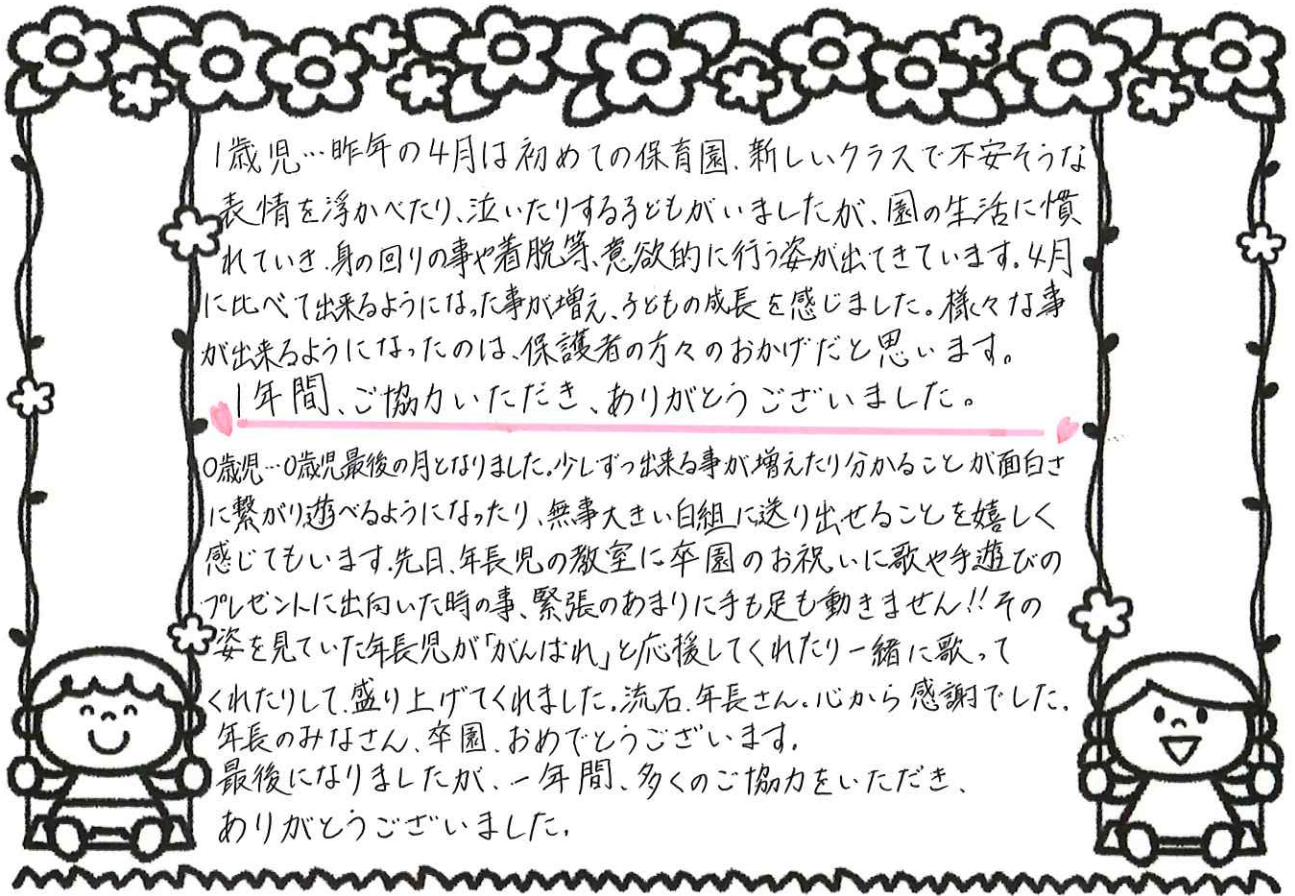 1歳児…昨年の4月は初めての保育園、新しいクラスで不安そうな
表情を浮かべたり、泣いたりする子どもがいましたが、園の生活に慣
れていき、身の回りの事や着脱等、意欲的に行う姿が出てきています。4月
に比べて出来るようになった事が増え、子どもの成長を感じました。様々な事
が出来るようになったのは、保護者の方々のおかげだと思います。
1年間、ご協力いただき、ありがとうございました。
0歳児…0歳児最後の月となりました。少しずつ出来る事が増えたり分かることが面白さ
に繋がり遊べるようになったり、無事大きい白組に送り出せることを嬉しく
感じてもいます。先日、年長児の教室に卒園のお祝いに歌や手遊びの
プレゼントに出向いた時の事、緊張のあまりに手も足も動きません!!その
姿を見ていた年長児が「がんばれ」と応援してくれたり一緒に歌って
くれたりして、盛り上げてくれました。流石、年長さん。心から感謝でした。
年長のみなさん、卒園、おめでとうございます。
最後になりましたが、一年間、多くのご協力をいただき、
ありがとうございました。